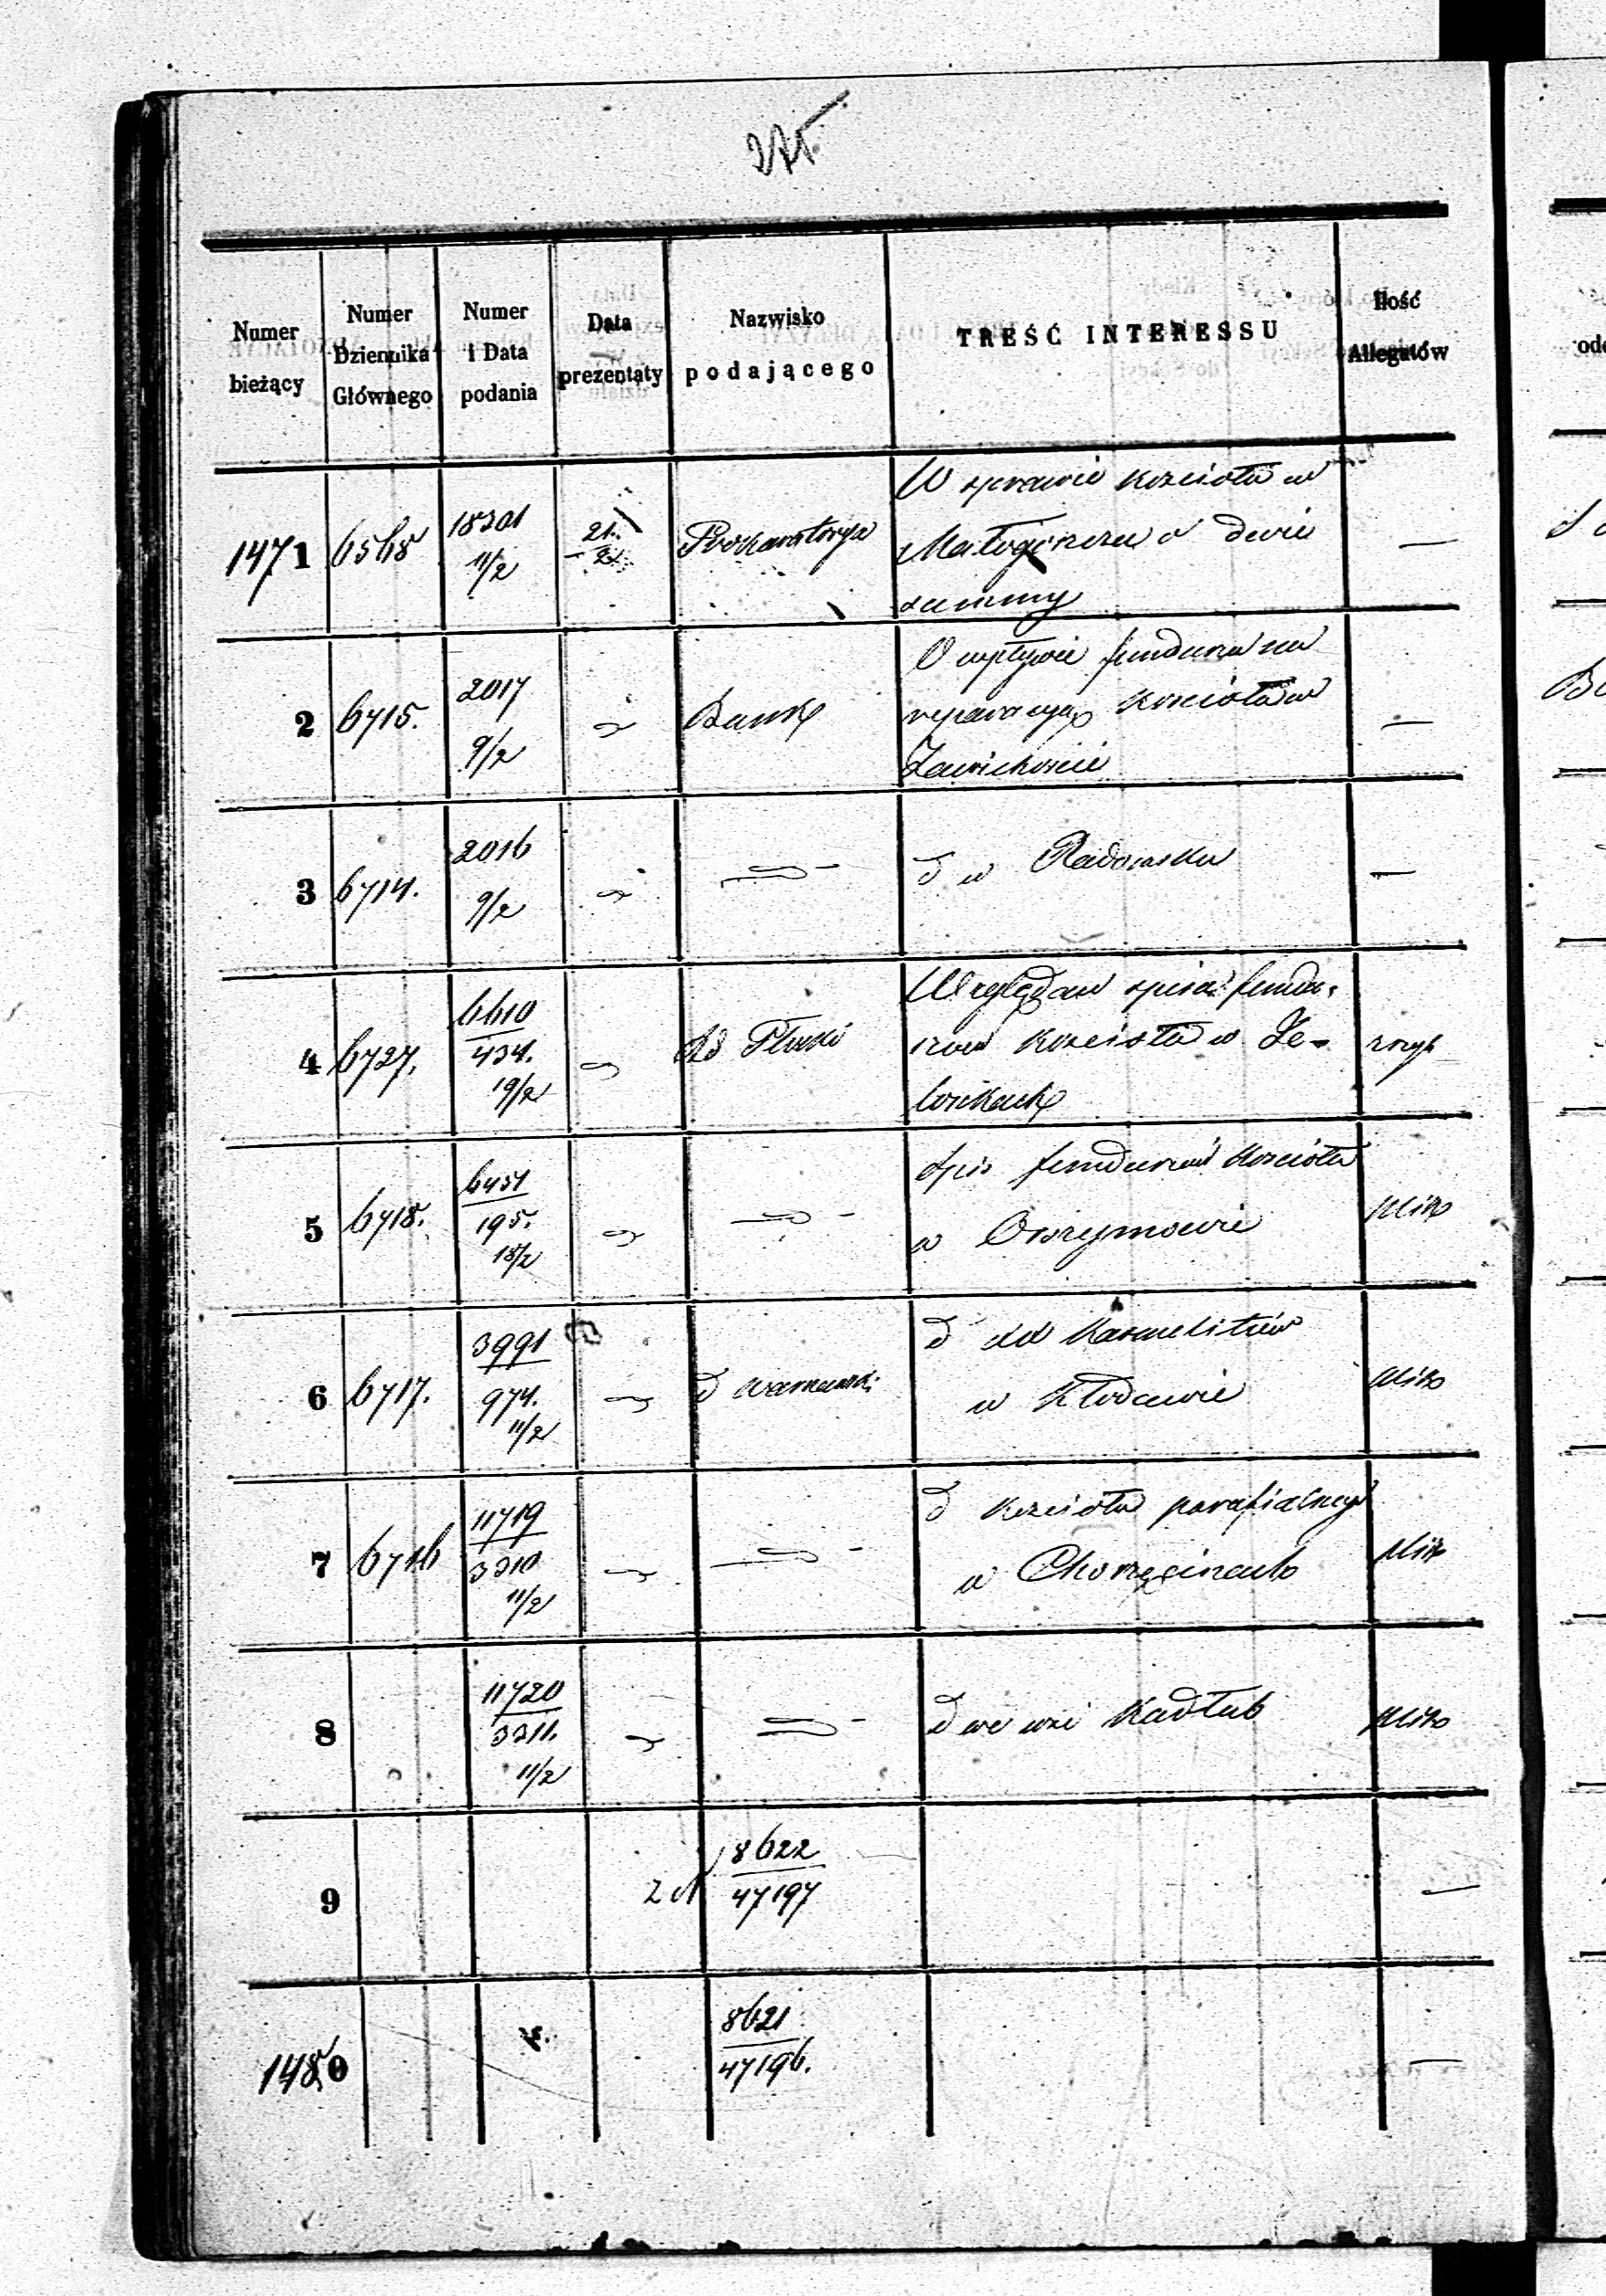 Numer bieżący
Numer Dziennika Głównego
Numer i Data podania
Data prezentaty
Nazwisko podającego
TREŚĆ INTERESSU
Ilość Allegatów
1471 6568 18301 11/2 21/2 Prokuratorya
W sprawie kościoła w
Małogoszczu o dwie
summy
—
2 6715. 2017 9/2 Bank
O wpływie funduszu na
reparacyą kościoła w
Zawichoście
—
3 6714. 2016 9/2
d w Radomsku
—
4 6727. 6610/434. 19/2 Rd Płocki
Względem spisu fundu-
szów kościoła w Ze-
5 6718. 6451/195. 18/2
Spis funduszów kościoła
w
6 6717. 3991/974. 11/2 d Warszawski
d Karmelitów
w Kłodawie
7 6716 11719/3310 11/2
d kościoła parafialnego
w Chorzęcinach
8 11720/3311. 11/2
d we wsi Kadłub
9 8622/47197 —
1480 8621/47196. —